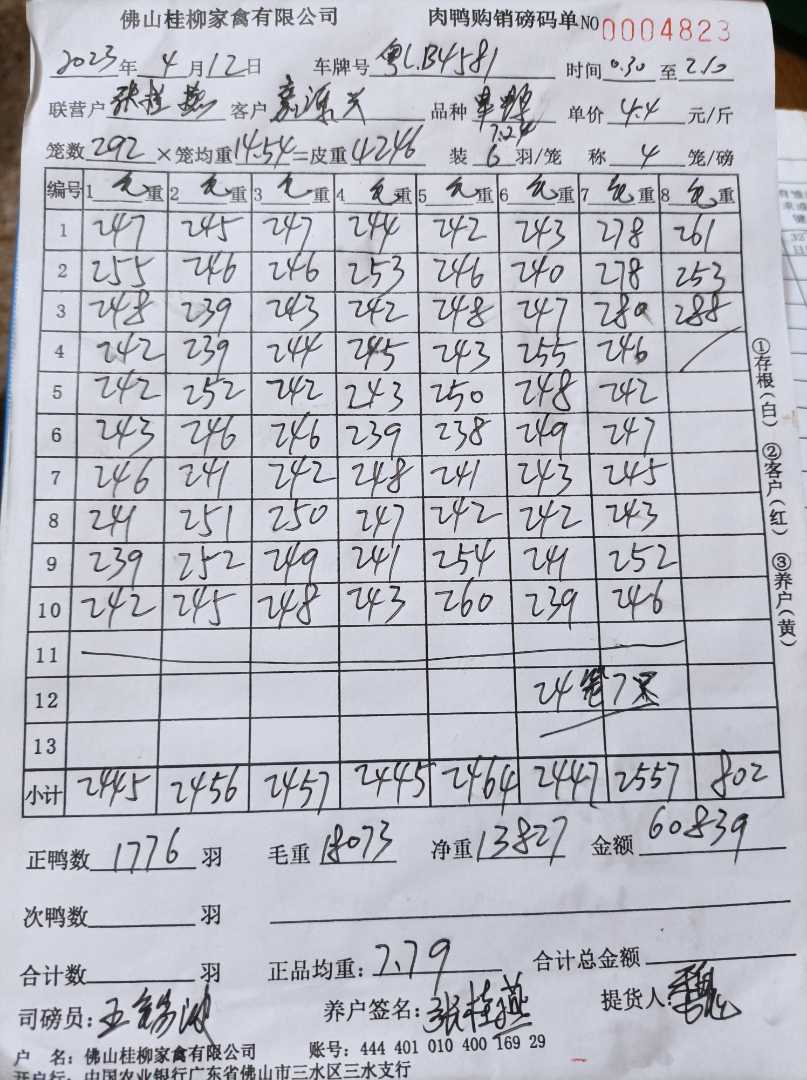 佛山桂柳家禽有限公司 肉鸭购销磅码单 NO 0004823
2023年 4月12日 车牌号 粤L.B4581 时间 0.30 至 2.10
联营户 张桂燕 客户 源兴 品种 单价 4.4 元/斤
7.24
笼数 292 ×笼均重 14.54 =皮重 4246 装 6 羽/笼 称 4 笼/磅
编号 1 毛重 2 毛重 3 毛重 4 毛重 5 毛重 6 毛重 7 毛重 8 毛重
1 247 245 247 244 242 243 278 261
2 255 246 246 253 246 240 278 253
3 248 239 243 242 248 247 280 288
4 242 239 244 245 243 255 246
5 242 252 242 243 250 248 242
6 243 246 246 239 238 249 247
7 246 241 242 248 241 243 245
8 241 251 250 247 242 242 243
9 239 252 249 241 254 241 252
10 242 245 248 243 260 239 246
11
12 24笼7只
13
小计 2445 2456 2457 2445 2464 2447 2557 802
①存根(白) ②客户(红) ③养户(黄)
正鸭数 1776 羽 毛重 18073 净重 13827 金额 60839
次鸭数 羽
合计数 羽 正品均重: 7.79 合计总金额
司磅员: 王 养户签名: 张桂燕 提货人:
户 名: 佛山桂柳家禽有限公司 账号: 444 401 010 400 169 29
开户行: 中国农业银行广东省佛山市三水区三水支行